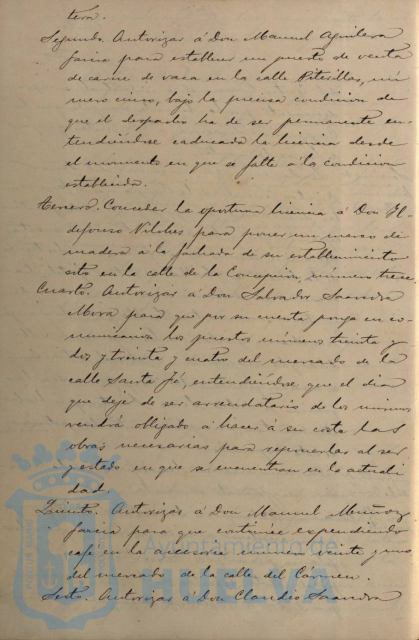 tera.
Segundo. Autorizar á Don Manuel Aguilera
Garcia para establecer un puesto de venta
de carne de vaca en la calle Piterillas, nú-
mero cinco, bajo la precisa condicion de
que el despacho ha de ser permanente en-
tendiéndose caducada la licencia desde
el momento en que se falte á la condicion
establecida.
Tercero. Conceder la oportuna licencia á Don Il-
defonso Vilches para poner un marco de
madera á la fachada de su establecimiento
sito en la calle de la Concepcion, número trece.
Cuarto. Autorizar á Don Salvador Saavedra
Mora para que por su cuenta ponga en co-
municacion los puestos números treinta y
dos y treinta y cuatro del mercado de la
calle Santa Fé, entendiéndose que el dia
que deje de ser arrendatario de los mismos
vendrá obligado á hacer á su costa las
obras necesarias para reponerlas al ser
y estado en que se encuentran en la actuali-
dad.
Quinto. Autorizar á Don Manuel Muñoz
Garcia para que continúe expendiendo
café en la accesoria número veinte y uno
del mercado de la calle del Cármen.
Sesto. Autorizar á Don Claudio Saavedra
Ayuntamiento de
HUELVA